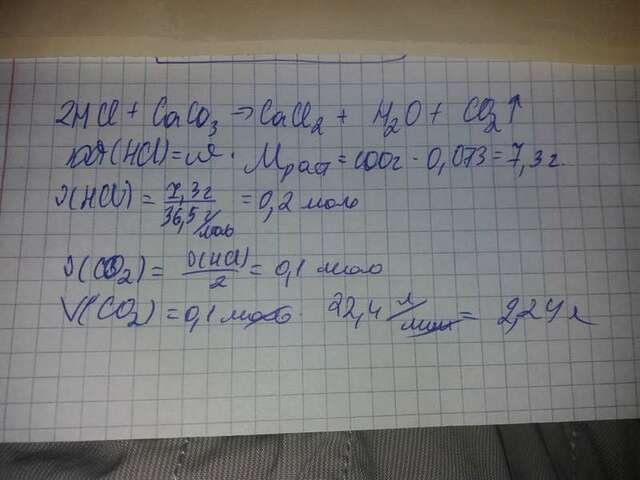 2HCl + CaCO₃ → CaCl₂ + H₂O + CO₂↑
(HCl) = ω · Mраст = 100г · 0,073 = 7,3 г.
ν(HCl) = 7,3г / 36,5 г/моль = 0,2 моль
ν(CO₂) = ν(HCl) / 2 = 0,1 моль
V(CO₂) = 0,1 моль · 22,4 л/моль = 2,24 л